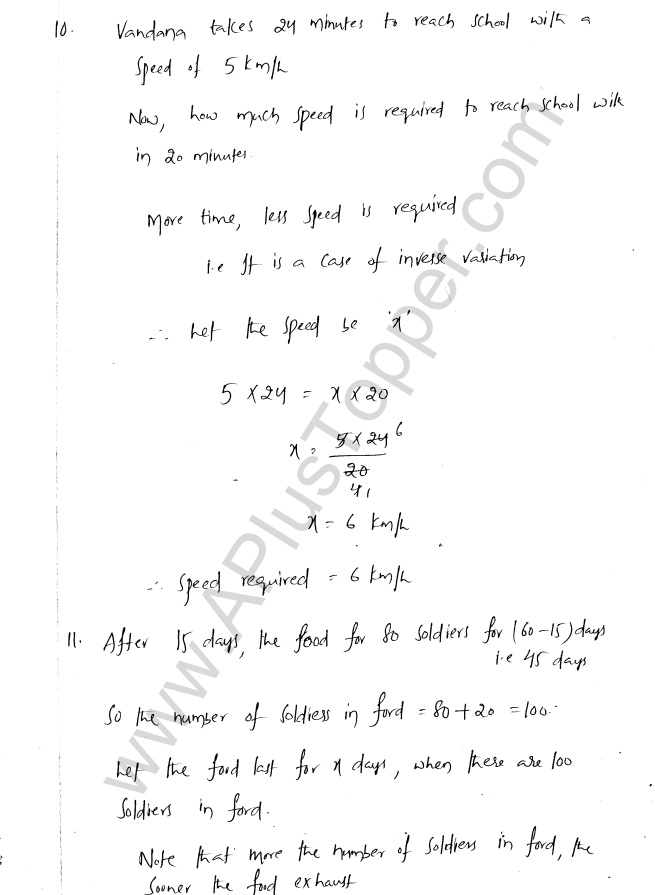 10. Vandana takes 24 minutes to reach school with a
speed of 5 km/h
Now, how much speed is required to reach school with
in 20 minutes.
More time, less speed is required
i.e It is a case of inverse variation
∴ Let the speed be 'x'
5 × 24 = x × 20
x = 5 × 24 6
20
4 1
x = 6 km/h
∴ Speed required = 6 km/h
11. After 15 days, the food for 80 soldiers for (60-15) days
i.e 45 days
So the number of soldiers in ford = 80 + 20 = 100.
Let the food last for x days, when there are 100
soldiers in ford.
Note that more the number of soldiers in ford, the
sooner the food exhaust
www.APlusTopper.com